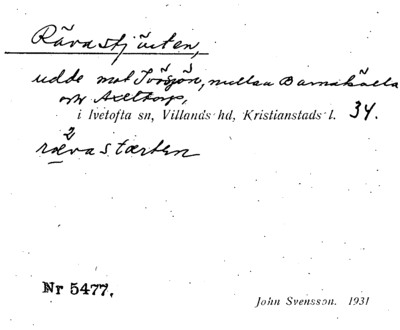 Rävastjärten,
udde mot Ivösjön, mellan Barnakälla
och Axeltorp,
i Ivetofta sn, Villands hd, Kristianstads l. 34.
rævastærten
2
Nr 5477.
John Svensson. 1931